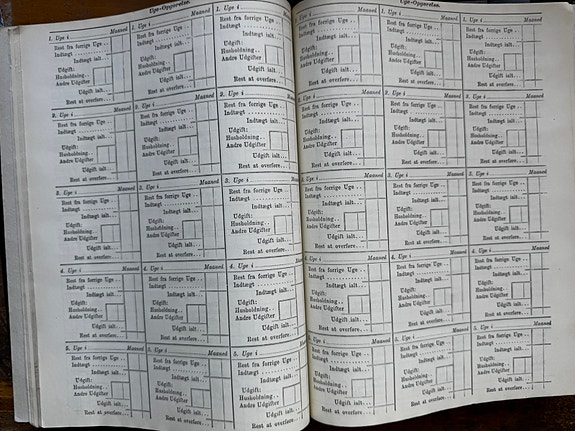 Uge-Opgørelse.
1. Uge i Maaned
Rest fra forrige Uge
Indtægt
Indtægt ialt
Udgift:
Husholdning
Andre Udgifter
Udgift ialt
Rest at overføre
1. Uge i Maaned
Rest fra forrige Uge
Indtægt
Indtægt ialt
Udgift:
Husholdning
Andre Udgifter
Udgift ialt
Rest at overføre
1. Uge i
Rest fra forrige Uge
Indtægt
Indtægt ialt
Udgift:
Husholdning
Andre Udgifter
Udgift ialt
Rest at overføre
2. Uge i Maaned
Rest fra forrige Uge
Indtægt
Indtægt ialt
Udgift:
Husholdning
Andre Udgifter
Udgift ialt
Rest at overføre
2. Uge i Maaned
Rest fra forrige Uge
Indtægt
Indtægt ialt
Udgift:
Husholdning
Andre Udgifter
Udgift ialt
Rest at overføre
2. Uge i Maaned
Rest fra forrige Uge
Indtægt
Indtægt ialt
Udgift:
Husholdning
Andre Udgifter
Udgift ialt
Rest at overføre
3. Uge i Maaned
Rest fra forrige Uge
Indtægt
Indtægt ialt
Udgift:
Husholdning
Andre Udgifter
Udgift ialt
Rest at overføre
3. Uge i Maaned
Rest fra forrige Uge
Indtægt
Indtægt ialt
Udgift:
Husholdning
Andre Udgifter
Udgift ialt
Rest at overføre
3. Uge i Maaned
Rest fra forrige Uge
Indtægt
Indtægt ialt
Udgift:
Husholdning
Andre Udgifter
Udgift ialt
Rest at overføre
4. Uge i Maaned
Rest fra forrige Uge
Indtægt
Indtægt ialt
Udgift:
Husholdning
Andre Udgifter
Udgift ialt
Rest at overføre
4. Uge i Maaned
Rest fra forrige Uge
Indtægt
Indtægt ialt
Udgift:
Husholdning
Andre Udgifter
Udgift ialt
Rest at overføre
4. Uge i Maaned
Rest fra forrige Uge
Indtægt
Indtægt ialt
Udgift:
Husholdning
Andre Udgifter
Udgift ialt
Rest at overføre
5. Uge i Maaned
Rest fra forrige Uge
Indtægt
Indtægt ialt
Udgift:
Husholdning
Andre Udgifter
Udgift ialt
Rest at overføre
5. Uge i Maaned
Rest fra forrige Uge
Indtægt
Indtægt ialt
Udgift:
Husholdning
Andre Udgifter
Udgift ialt
Rest at overføre
5. Uge i Maaned
Rest fra forrige Uge
Indtægt
Indtægt ialt
Udgift:
Husholdning
Andre Udgifter
Udgift ialt
Rest at overføre
Uge-Opgørelse.
Uge i Maaned
Rest fra forrige Uge
Indtægt
Indtægt ialt
Udgift:
Husholdning
Andre Udgifter
Udgift ialt
Rest at overføre
1. Uge i Maaned
Rest fra forrige Uge
Indtægt
Indtægt ialt
Udgift:
Husholdning
Andre Udgifter
Udgift ialt
Rest at overføre
1. Uge i Maaned
Rest fra forrige Uge
Indtægt
Indtægt ialt
Udgift:
Husholdning
Andre Udgifter
Udgift ialt
Rest at overføre
Uge i Maaned
Rest fra forrige Uge
Indtægt
Indtægt ialt
Udgift:
Husholdning
Andre Udgifter
Udgift ialt
Rest at overføre
2. Uge i Maaned
Rest fra forrige Uge
Indtægt
Indtægt ialt
Udgift:
Husholdning
Andre Udgifter
Udgift ialt
Rest at overføre
2. Uge i Maaned
Rest fra forrige Uge
Indtægt
Indtægt ialt
Udgift:
Husholdning
Andre Udgifter
Udgift ialt
Rest at overføre
Uge i Maaned
Rest fra forrige Uge
Indtægt
Indtægt ialt
Udgift:
Husholdning
Andre Udgifter
Udgift ialt
Rest at overføre
3. Uge i Maaned
Rest fra forrige Uge
Indtægt
Indtægt ialt
Udgift:
Husholdning
Andre Udgifter
Udgift ialt
Rest at overføre
3. Uge i Maaned
Rest fra forrige Uge
Indtægt
Indtægt ialt
Udgift:
Husholdning
Andre Udgifter
Udgift ialt
Rest at overføre
Uge i Maaned
Rest fra forrige Uge
Indtægt
Indtægt ialt
Udgift:
Husholdning
Andre Udgifter
Udgift ialt
Rest at overføre
4. Uge i Maaned
Rest fra forrige Uge
Indtægt
Indtægt ialt
Udgift:
Husholdning
Andre Udgifter
Udgift ialt
Rest at overføre
4. Uge i Maaned
Rest fra forrige Uge
Indtægt
Indtægt ialt
Udgift:
Husholdning
Andre Udgifter
Udgift ialt
Rest at overføre
Uge i Maaned
Rest fra forrige Uge
Indtægt
Indtægt ialt
Udgift:
Husholdning
Andre Udgifter
Udgift ialt
Rest at overføre
5. Uge i Maaned
Rest fra forrige Uge
Indtægt
Indtægt ialt
Udgift:
Husholdning
Andre Udgifter
Udgift ialt
Rest at overføre
5. Uge i Maaned
Rest fra forrige Uge
Indtægt
Indtægt ialt
Udgift:
Husholdning
Andre Udgifter
Udgift ialt
Rest at overføre